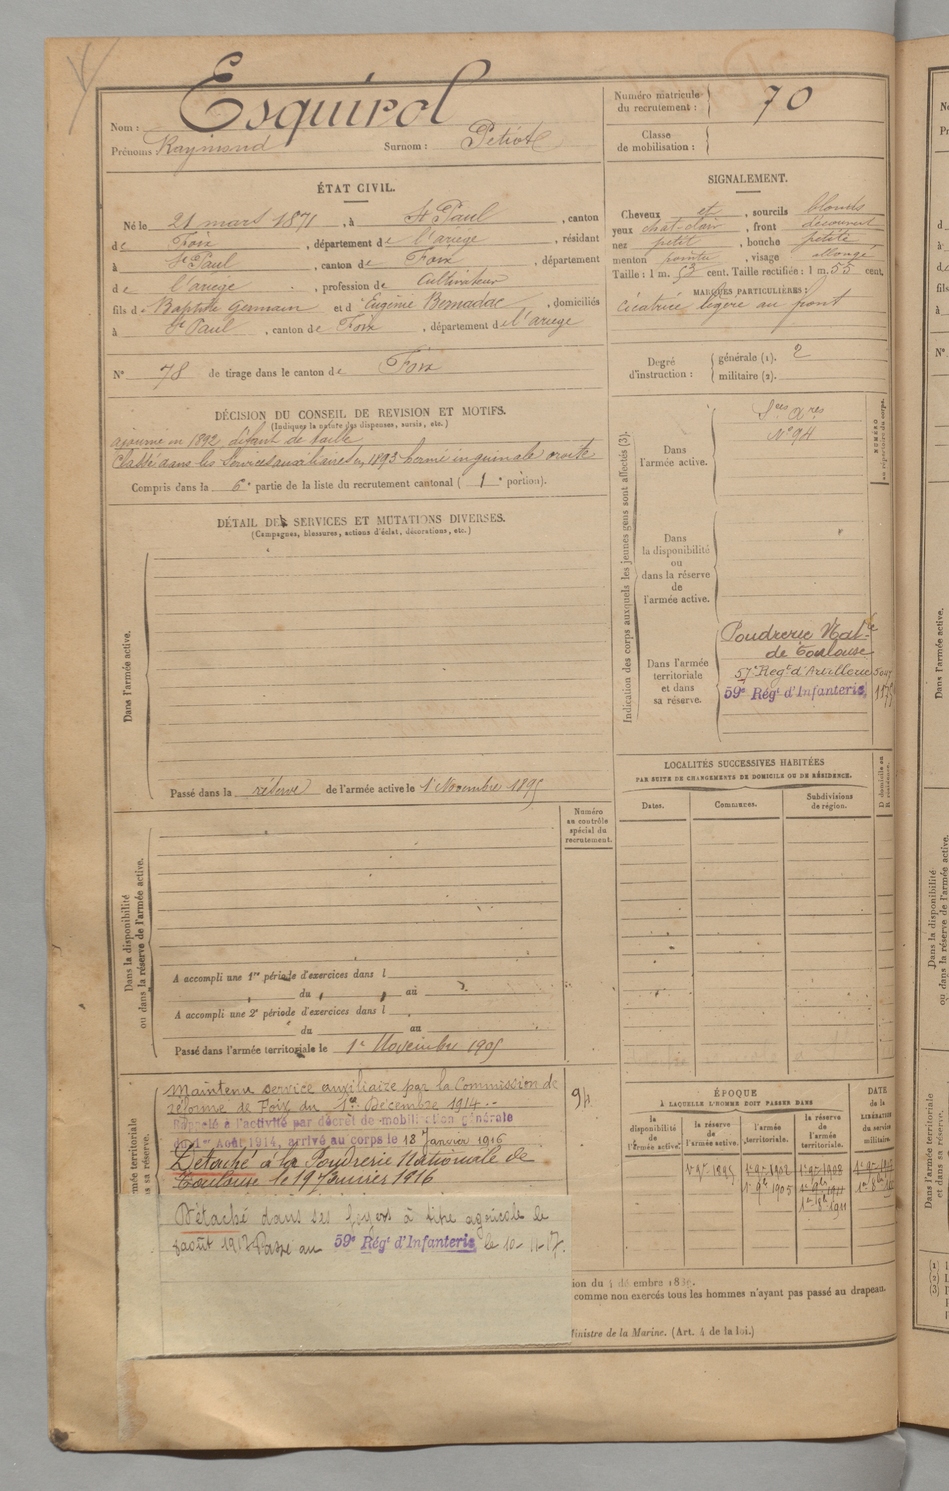 Esquirol
Nom :
Prénoms : Raymond Surnom : Petiot
Numéro matricule du recrutement : 70
Classe de mobilisation :
ÉTAT CIVIL.
Né le 21 mars 1871, à St Paul, canton
de Foix, département de l'ariège, résidant
à St Paul, canton de Foix, département
de l'ariège, profession de Cultivateur
fils de Baptiste Germain et d'Eugénie Bernadac, domiciliés
à St Paul, canton de Foix, département de l'ariege
N° 78 de tirage dans le canton de Foix
SIGNALEMENT.
Cheveux et, sourcils blonds
yeux chat-clair, front découvert
nez petit, bouche petite
menton pointu, visage allongé
Taille : 1 m. 53 cent. Taille rectifiée : 1 m. 55 cent.
MARQUES PARTICULIÈRES :
Cicatrice légère au front
Degré d'instruction : générale (1). 2
militaire (2).
DÉCISION DU CONSEIL DE REVISION ET MOTIFS.
(Indiquer la nature des dispenses, sursis, etc.)
ajourné en 1892 défaut de taille
Classé dans les Services auxiliaires en 1893 hernie inguinale droite
Compris dans la 6e partie de la liste du recrutement cantonal (1e portion).
DÉTAIL DES SERVICES ET MUTATIONS DIVERSES.
(Campagnes, blessures, actions d'éclat, décorations, etc.)
Dans l'armée active.
Passé dans la réserve de l'armée active le 1e Novembre 1895
Indication des corps auxquels les jeunes gens sont affectés (3).
NUMÉRO au répertoire du corps.
Dans l'armée active.
Sces Ares
N° 94
Dans la disponibilité ou dans la réserve de l'armée active.
Dans l'armée territoriale et dans sa réserve.
Poudrerie Natle
de Toulouse
57e Regt d'Artillerie
59e Régt d'Infanterie
LOCALITÉS SUCCESSIVES HABITÉES
PAR SUITE DE CHANGEMENTS DE DOMICILE OU DE RÉSIDENCE.
Dates. Communes. Subdivisions de région. D domicile ou R résidence.
Numéro au contrôle spécial du recrutement.
94
Dans la disponibilité ou dans la réserve de l'armée active.
A accompli une 1re période d'exercices dans l
du au
A accompli une 2e période d'exercices dans l
du au
Passé dans l'armée territoriale le 1e Novembre 1905
Maintenu service auxiliaire par la Commission de
réforme de Foix du 1er Décembre 1914.
Rappelé à l'activité par décret de mobilisation générale
du 1er Août 1914, arrivé au corps le 18 Janvier 1916
Détaché à la Poudrerie Nationale de
Toulouse le 19 Janvier 1916
Détaché dans ses foyers à titre agricole le
août 1917 Passé au 59e Régt d'Infanterie le 10-11-17.
ÉPOQUE
À LAQUELLE L'HOMME DOIT PASSER DANS
la disponibilité de l'armée active. la réserve de l'armée active. l'armée territoriale. la réserve de l'armée territoriale.
DATE de la LIBÉRATION du service militaire.
1e 9e 1895 1e 9e 1902 1e 9e 1908
1e 9e 1905 1e 9e 1911
1911
comme non exercés tous les hommes n'ayant pas passé au drapeau.
Ministre de la Marine. (Art. 4 de la loi.)